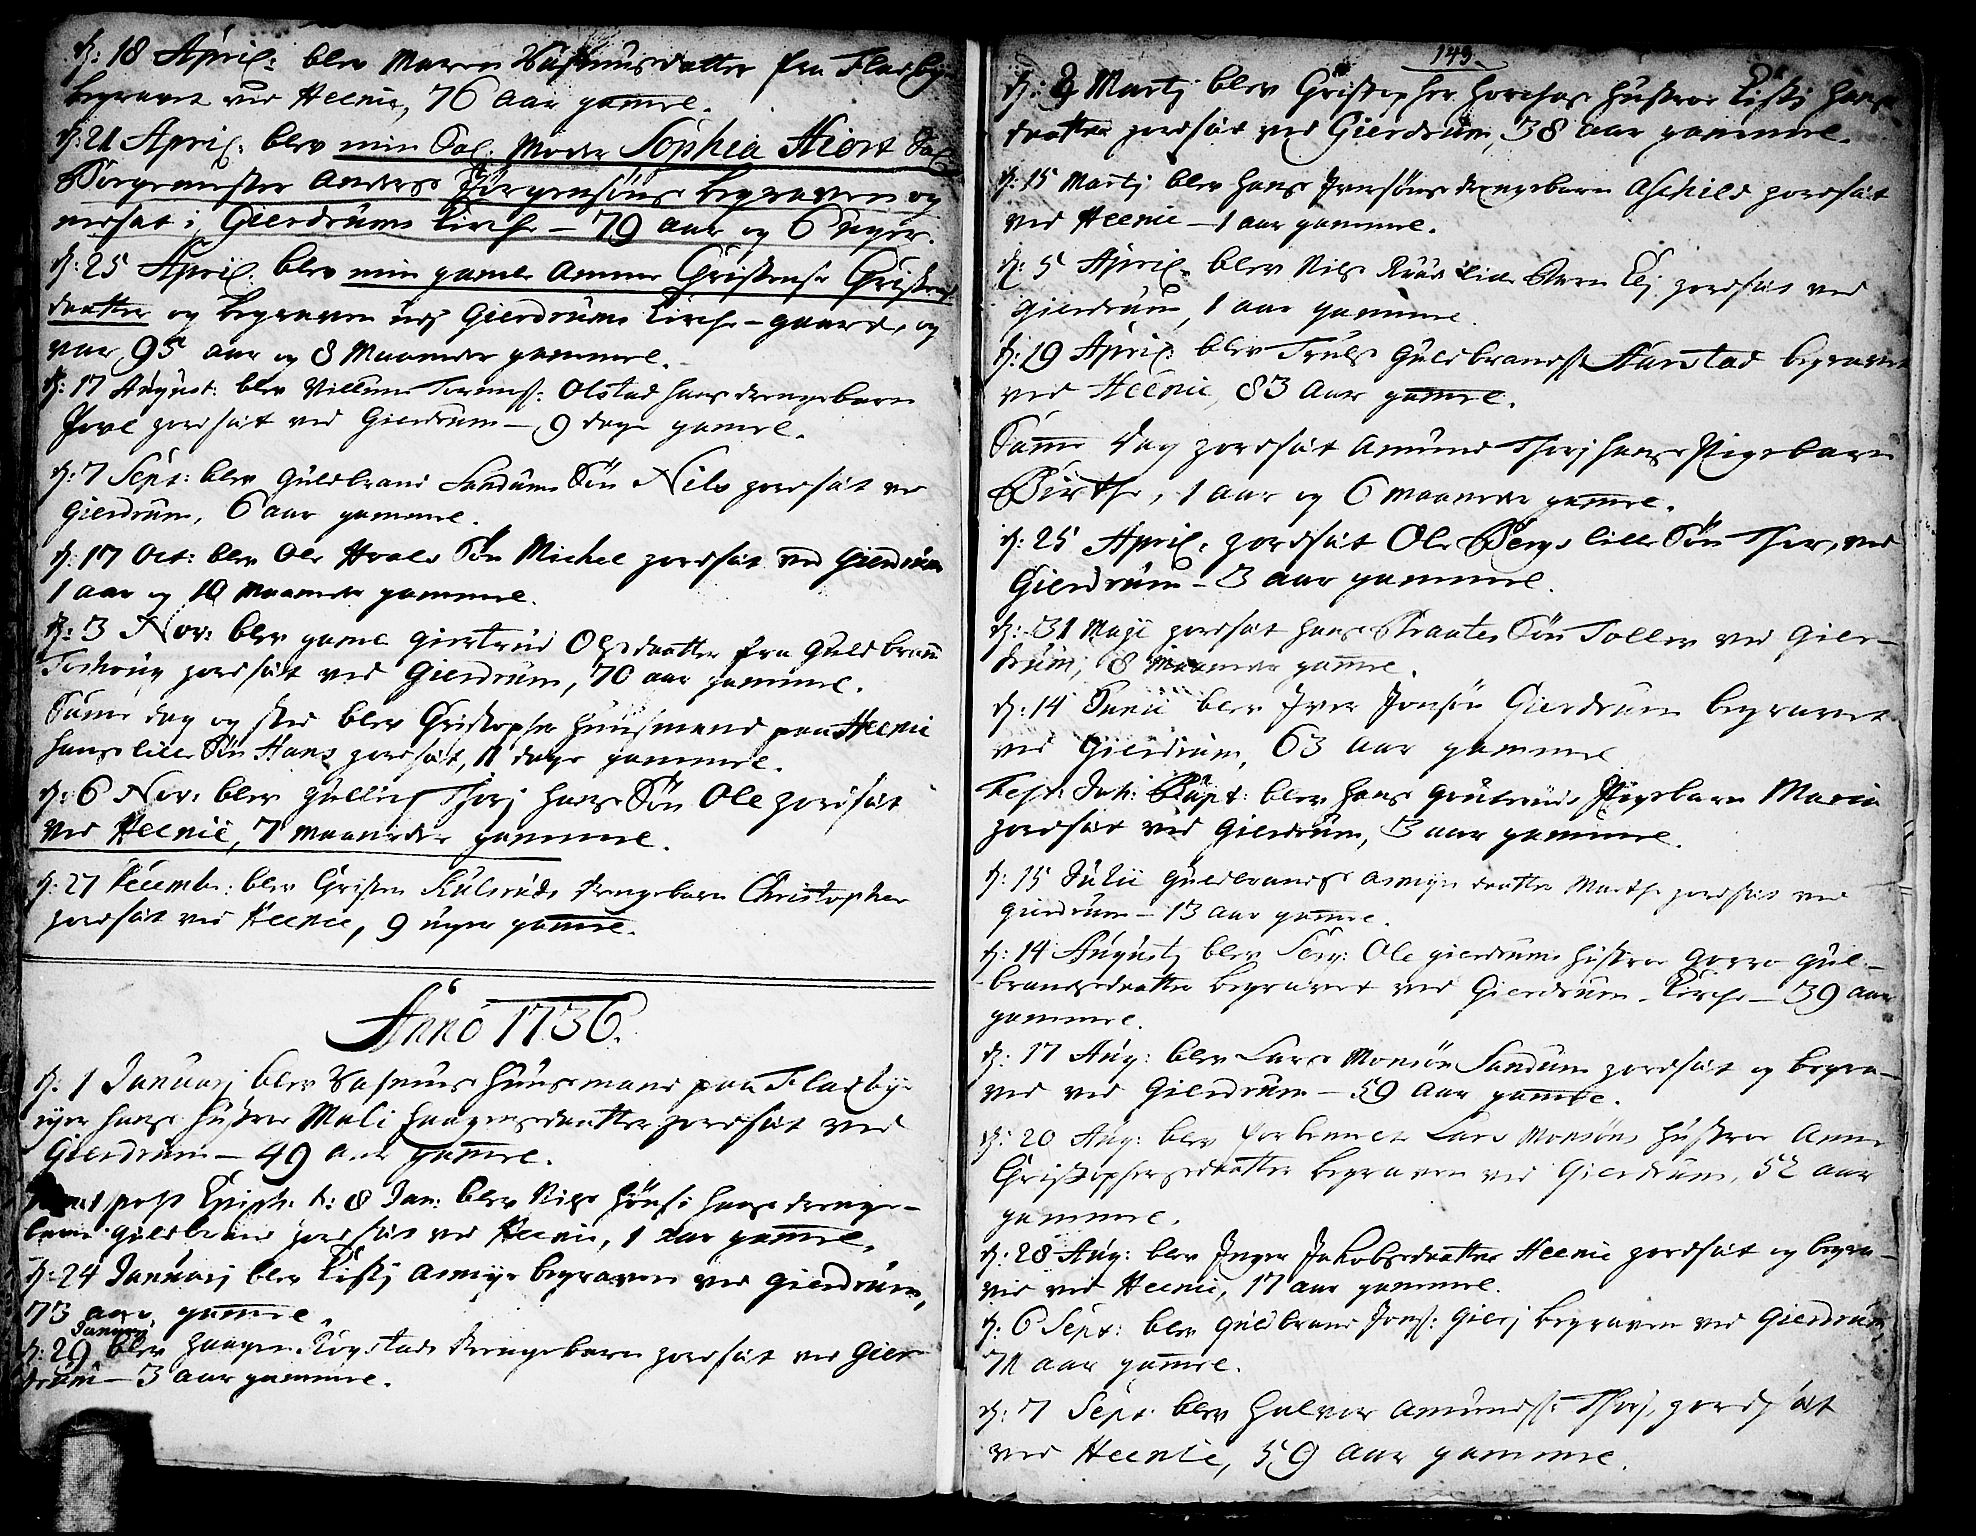 d: 18 April: blev Maren Rasmusdatter fra Fladby
begravet ved Heenie, 76 aar gamel.
d: 21 April: blev min Sal: Moder Sophia Hiort Sal:
Borgemester Anders Jörgensöns begraven og
nedsat i Gierdrums Kirche – 79 aar og 6 uger.
d: 25 April: blev min gamle Amme Christense Christens
daatter og begraven ved Gierdrums Kirche-gaard, og
var 95 aar og 8 Maaneder gammel.
d: 17 August: blev Villum Olstad hans drengebarn
jordsat ved Gierdrum – 9 dage gamel.
d: 7 Sept: blev Guldbrand Sandums Sön Nils jordsat ved
Gierdrum, 6 aar gammel.
d: 17 Oct: blev Ole Hvals Sön Michel jordsat ved Gierdrum
1 aar og 10 Maaneder gammel.
d: 3 Nov: blev gamel Giertrud Olsdaatter fra Guldbrand
jordsat ved Gierdrum, 70 aar gammel.
Samme dag og sted blev Christopher Huusmand paa Heenie
hans lille Sön Hans jordsat, 11 dage gammel.
d: 6 Nov: blev Gulbrand hans Sön Ole jordsat
ved Heenie, 7 maaneder gammel.
d: 27 Decembr: blev Christen Kulsruds drengebarn Christopher
jordsat ved Heenie, 9 uger gamel.
Anno 1736.
d. 1 Januarj blev Rasmus Huusmand paa Fladby
hans hustroe Mali Haagensdaatter jordsat ved
Gierdrum – 49 aar gamel.
1 post Epiph. d: 8 Jan: blev Nils Hönsi hans drenge-
barn Guldbrand jordsat ved Heenie, 1 aar gamel.
d: 24 Januarj blev Kisti Asmyr begraven ved Gierdrum,
73 aar gamel.
Januarj
d: 29 blev Haagen Rogstads drengebarn jordsat ved Gier-
drum – 3 aar gammel.
143.
d: 9 Martj blev Christopher hustroe Kisti Hans-
daatter jordsat ved Gierdrum, 38 aar gammel.
d: 15 Martj blev Hans Iversöns drengebarn Aschild jordsat
ved Heenie – 1 aar gammel.
d: 5 April: blev Nils lille jordsat ved
Gierdrum, 1 aar gammel.
d: 19 April: blev Truls Guldbrands: Aurstad begravet
ved Heenie, 83 aar gamel.
Samme dag jordsat Amund hans Pigebarn
Birthe, 1 aar og 6 maaneder gamel.
d: 25 April: jordsat Ole Bergs lille Sön Thor, ved
Gierdrum – 3 aar gammel.
d: 31 Maji jordsat Hans Braates Sön Tollev ved Gier-
drum, 8 Maaneder gamel.
d: 14 Junii blev Iver Jonsön Gierdrum begravet
ved Gierdrum, 63 aar gammel
Fest: Joh: Bapt: blev Hans Pigebarn Maria
jordsat ved Gierdrum, 3 aar gammel.
d: 15 Julii Guldbrands Asmyr daatter Marthe jordsat ved
Gierdrum – 13 aar gamel.
d: 14 Augustj blev Serg: Ole Gierdrums hustroe Gul-
brandsdaatter begravet ved Gierdrum Kirche – 39 aar
gammel.
d: 17 Aug: blev Lars Monsön Sandum jordsat og begra-
ved ved Gierdrum – 59 aar gamel.
d: 20 Aug: blev Lars Monsöns hustroe Anne
Christophersdaatter begraven ved Gierdrum, 52 aar
gammel.
d: 28 Aug: blev Inger Jakobsdaatter Heenie jordsat og begra-
vet ved Heenie, 17 aar gammel.
d: 6 Sept: blev Guldbrand Jons: begraven ved Gierdrum,
71 aar gamel.
d: 7 Sept blev Halvor Amunds: jordsat
ved Heenie, 59 aar gammel.